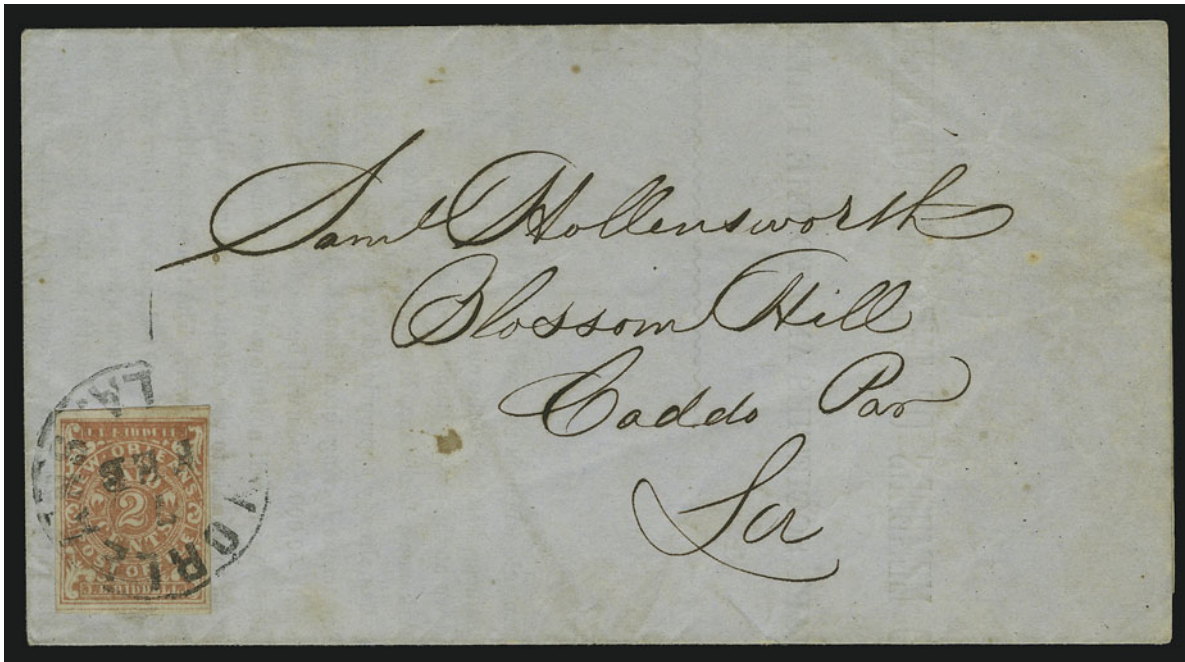 Saml Hollensworth
Blossom Hill
Caddo Par
La
J.L. RIDDELL
NEW-ORLEANS
PAID
2
CENTS
POST OFFICE
J.L. RIDDELL
LA.
FEB